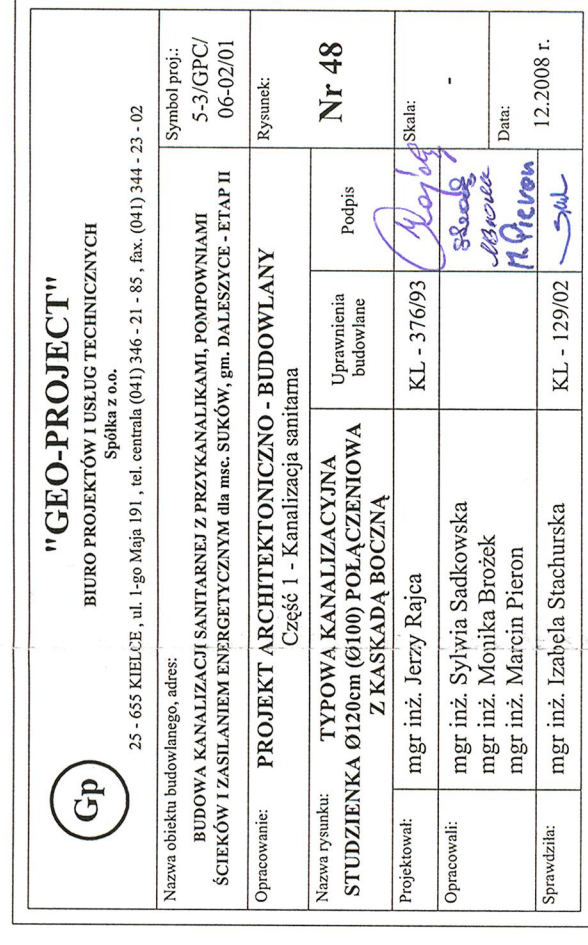 Gp
"GEO-PROJECT"
BIURO PROJEKTÓW I USŁUG TECHNICZNYCH
Spółka z o.o.
25 - 655 KIELCE , ul. 1-go Maja 191 , tel. centrala (041) 346 - 21 - 85 , fax. (041) 344 - 23 - 02
Nazwa obiektu budowlanego, adres:
BUDOWA KANALIZACJI SANITARNEJ Z PRZYKANALIKAMI, POMPOWNIAMI
ŚCIEKÓW I ZASILANIEM ENERGETYCZNYM dla msc. SUKÓW, gm. DALESZYCE - ETAP II
Symbol proj.:
5-3/GPC/
06-02/01
Opracowanie:
PROJEKT ARCHITEKTONICZNO - BUDOWLANY
Część 1 - Kanalizacja sanitarna
Rysunek:
Nr 48
Nazwa rysunku:
TYPOWA KANALIZACYJNA
STUDZIENKA Ø120cm (Ø100) POŁĄCZENIOWA
Z KASKADĄ BOCZNĄ
Uprawnienia
budowlane
Podpis
Projektował:
mgr inż. Jerzy Rajca
KL - 376/93
Skala:
-
Opracowali:
mgr inż. Sylwia Sadkowska
mgr inż. Monika Brożek
mgr inż. Marcin Pieron
M. Pieron
Data:
12.2008 r.
Sprawdziła:
mgr inż. Izabela Stachurska
KL - 129/02